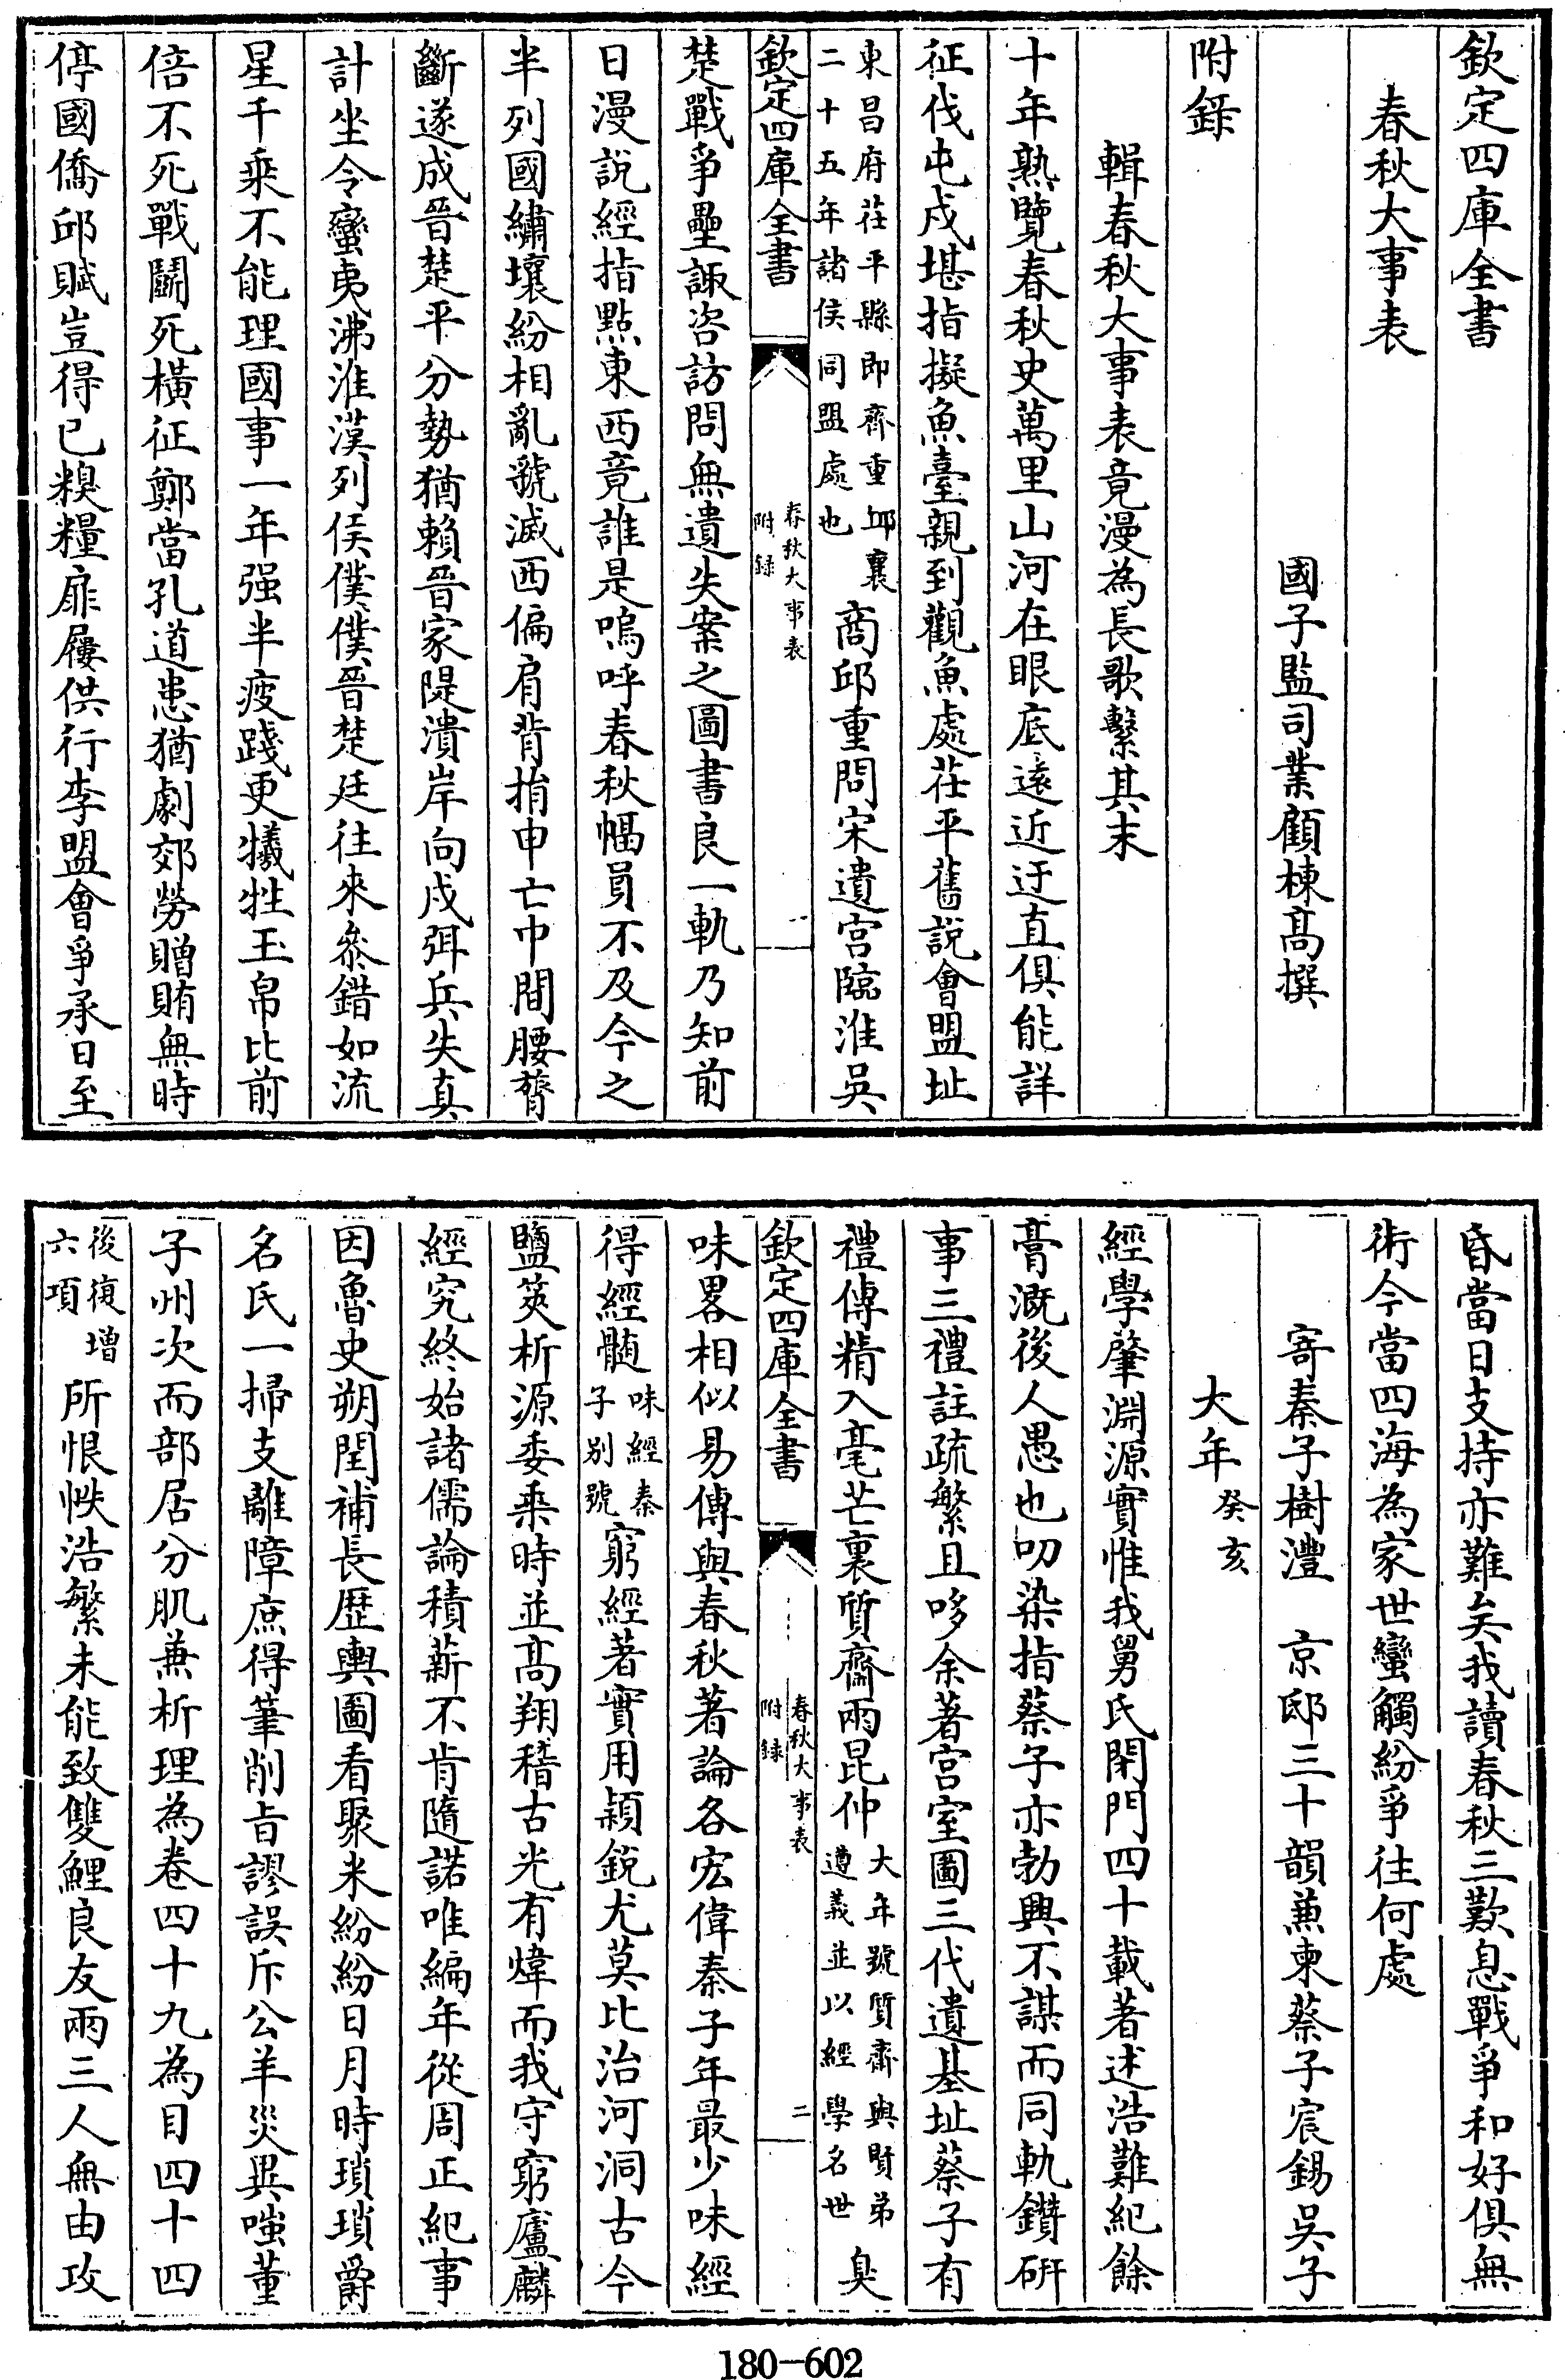 欽定四庫全書
春秋大事表
國子監司業顧棟高撰
附錄
輯春秋大事表竟漫為長歌繫其末
十年熟覽春秋史萬里山河在眼底遠近迂直俱能詳
征伐屯戍堪指擬魚臺親到觀魚處茌平舊說會盟址
東昌府茌平縣即齊重邱襄
二十五年諸侯同盟處也
商邱重問宋遺宮臨淮吳
欽定四庫全書
春秋大事表
附錄
一
楚戰爭壘諏咨訪問無遺失案之圖書良一軌乃知前
日漫說經指點東西竟誰是嗚呼春秋幅員不及今之
半列國繡壤紛相亂虢滅西偏肩背捐申亡中間腰膂
斷遂成晉楚平分勢猶賴晉家隄潰岸向戍弭兵失真
計坐令蠻夷沸淮漢列侯僕僕晉楚廷往來叅錯如流
星千乘不能理國事一年强半疲踐更犧牲玉帛比前
倍不死戰鬭死橫征鄭當孔道患猶劇郊勞贈賄無時
停國僑邱賦豈得已糗糧扉屨供行李盟會爭承日至
昏當日支持亦難矣我讀春秋三歎息戰爭和好俱無
術今當四海為家世蠻觸紛爭往何處
寄秦子樹灃　京邸三十韻兼柬蔡子宸錫吳子
大年癸亥
經學肇淵源實惟我舅氏閉門四十載著述浩難紀餘
膏溉後人愚也叨染指蔡子亦勃興不謀而同軌鑽研
事三禮註疏繁且哆余著宮室圖三代遺基址蔡子有
禮傳精入毫芒裏質齋兩昆仲
大年號質齋與賢弟
遵義並以經學名世
臭
欽定四庫全書
春秋大事表
附錄
二
味畧相似易傳與春秋著論各宏偉秦子年最少味經
得經髓
味經秦
子別號
窮經著實用穎銳尤莫比治河洞古今
鹽筴析源委乘時並高翔稽古光有煒而我守窮廬麟
經究終始諸儒論積薪不肯隨諾唯編年從周正紀事
因魯史朔閏補長歷輿圖看聚米紛紛日月時瑣瑣爵
名氏一掃支離障庶得筆削旨謬誤斥公羊災異嗤董
子州次而部居分肌兼析理為卷四十九為目四十四
後復增
六項
所恨帙浩繁未能致雙鯉良友兩三人無由攻
180-602